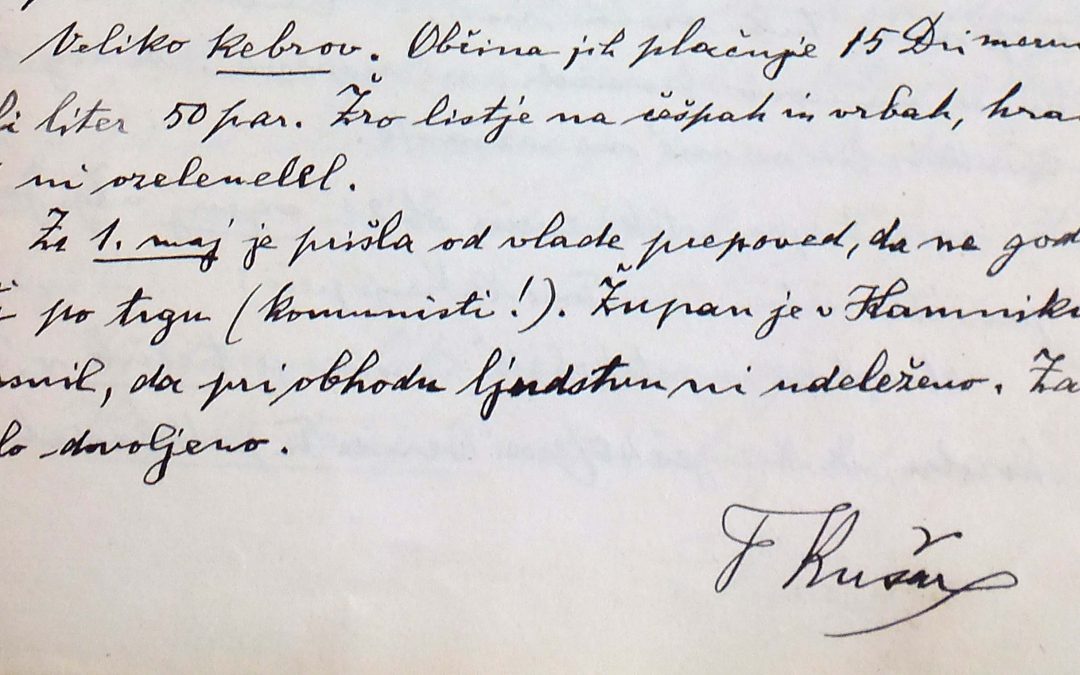 Veliko kebrov. Občina jih plačuje 15 Din merni
li liter 50 par. Žro listje na češpah in vrbah, hra
ni ozelenelel.
Za 1. maj je prišla od vlade prepoved, da ne god
po trgu (komunisti!). Župan je v Kamniku
snil, da pri obhodu ljudstvu ni udeleženo. Za
lo dovoljeno.
F Kušar